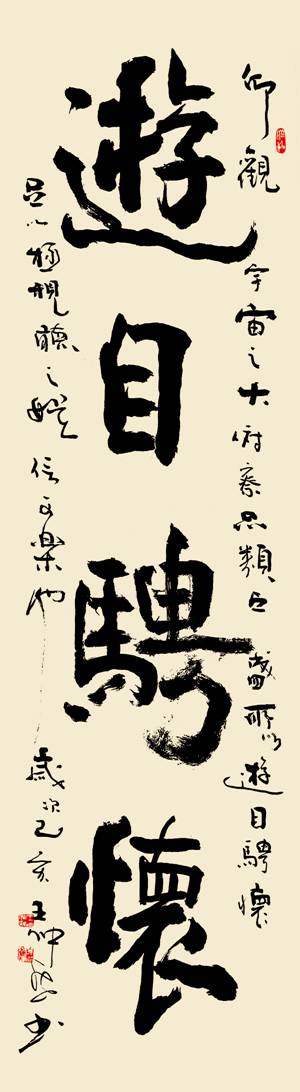 遊目騁懷
仰觀宇宙之大俯察品類之盛所以遊目騁懷
足以極視聽之娛信可樂也 歲次己亥 王坤 書